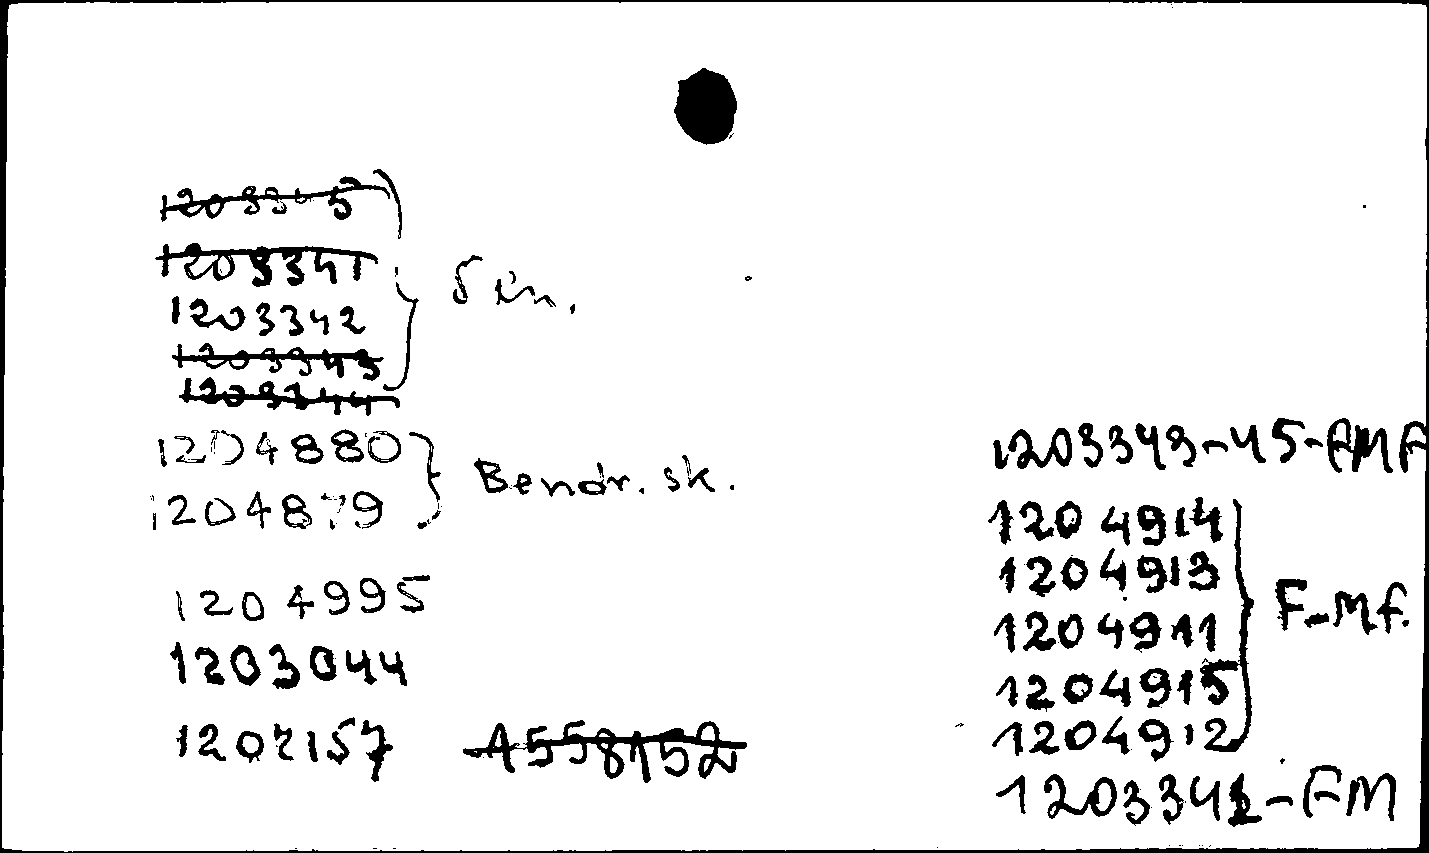 1203345
1203341
1203342
1203343
1203344
Sen.
1204880
1204879
Bendr. sk.
1204995
1203044
1202157 1558152
1203343-45-FMF
1204914
1204913
1204911
1204915
1204912
F-Mf.
1203341-FM